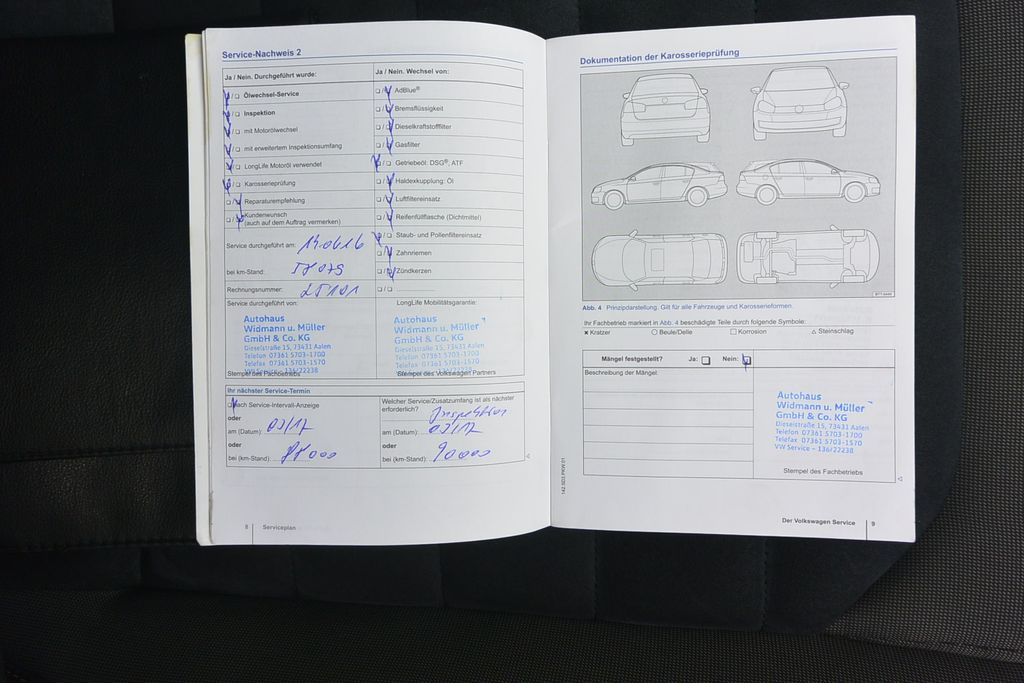 Service-Nachweis 2
Ja / Nein. Durchgeführt wurde:
Ölwechsel-Service
Inspektion
mit Motorölwechsel
mit erweitertem Inspektionsumfang
LongLife Motoröl verwendet
Karosserieprüfung
Reparaturempfehlung
Kundenwunsch
(auch auf dem Auftrag vermerken)
Service durchgeführt am:
bei km-Stand:
Rechnungsnummer:
Service durchgeführt von:
Autohaus
Widmann u. Müller
GmbH & Co. KG
Dieselstraße 15, 73431 Aalen
Telefon 07361 5703-1700
Telefax 07361 5703-1570
VW Service - 136/22238
Stempel des Fachbetriebs
Ja / Nein. Wechsel von:
AdBlue®
Bremsflüssigkeit
Dieselkraftstofffilter
Gasfilter
Getriebeöl: DSG®, ATF
Haldexkupplung: Öl
Luftfiltereinsatz
Reifenfüllflasche (Dichtmittel)
Staub- und Pollenfiltereinsatz
Zahnriemen
Zündkerzen
LongLife Mobilitätsgarantie:
Autohaus
Widmann u. Müller
GmbH & Co. KG
Dieselstraße 15, 73431 Aalen
Telefon 07361 5703-1700
Telefax 07361 5703-1570
VW Service - 136/22238
Stempel des Volkswagen Partners
Ihr nächster Service-Termin
nach Service-Intervall-Anzeige
oder
am (Datum): 03/17
oder
bei (km-Stand):
Welcher Service/Zusatzumfang ist als nächster
erforderlich? Inspektion
am (Datum): 03/17
oder
bei (km-Stand): 90000
8 Serviceplan
Dokumentation der Karosserieprüfung
Abb. 4 Prinzipdarstellung. Gilt für alle Fahrzeuge und Karosserieformen.
Ihr Fachbetrieb markiert in Abb. 4 beschädigte Teile durch folgende Symbole:
Kratzer Beule/Delle Korrosion Steinschlag
Mängel festgestellt? Ja: Nein:
Beschreibung der Mängel
Autohaus
Widmann u. Müller
GmbH & Co. KG
Dieselstraße 15, 73431 Aalen
Telefon 07361 5703-1700
Telefax 07361 5703-1570
VW Service - 136/22238
Stempel des Fachbetriebs
Der Volkswagen Service 9